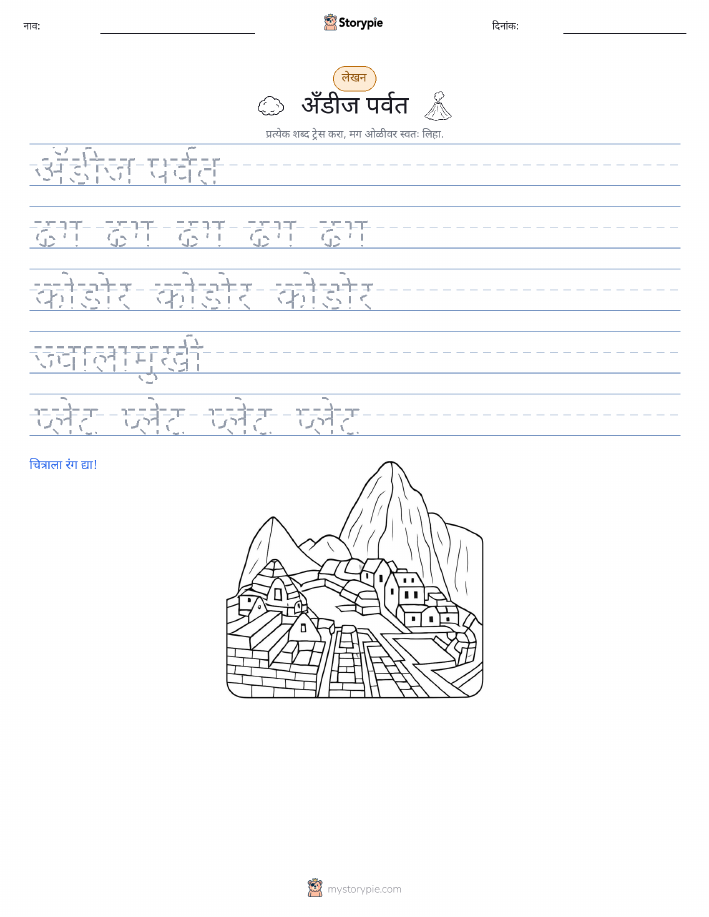 नाव:
Storypie
दिनांक:
लेखन
अँडीज पर्वत
प्रत्येक शब्द ट्रेस करा, मग ओळीवर स्वतः लिहा.
अँडीज पर्वत
ढग ढग ढग ढग ढग
कोंडोर कोंडोर कोंडोर
ज्वालामुखी
प्लेट प्लेट प्लेट प्लेट
चित्राला रंग द्या!
mystorypie.com